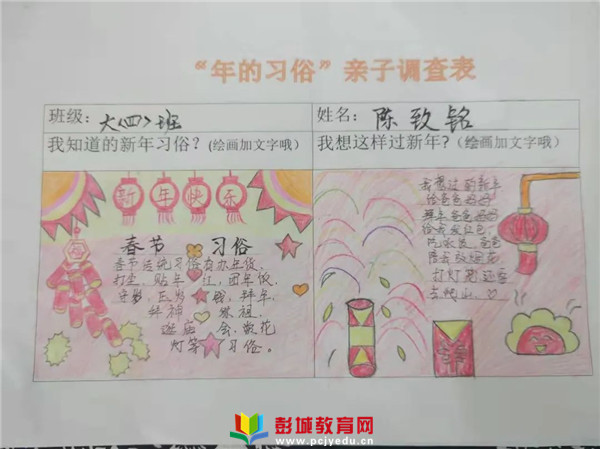 “年的习俗”亲子调查表
班级：大〈四〉班
姓名：陈致铭
我知道的新年习俗？(绘画加文字哦)
我想这样过新年?（绘画加文字哦）
新年快乐
春节 习俗
春节传统习俗有办年货,
打尘，贴年红，团年饭，
守岁，压岁钱，拜年，
拜神 祭祖，
逛庙会，散花
灯等习俗。
我想过的新年
给爸爸妈妈
拜年爸爸妈妈
给我发红包。
吃水饺 爸爸
陪我放烟花
打灯笼还要
去爬山。
彭城教育网
www.pcjyedu.cn